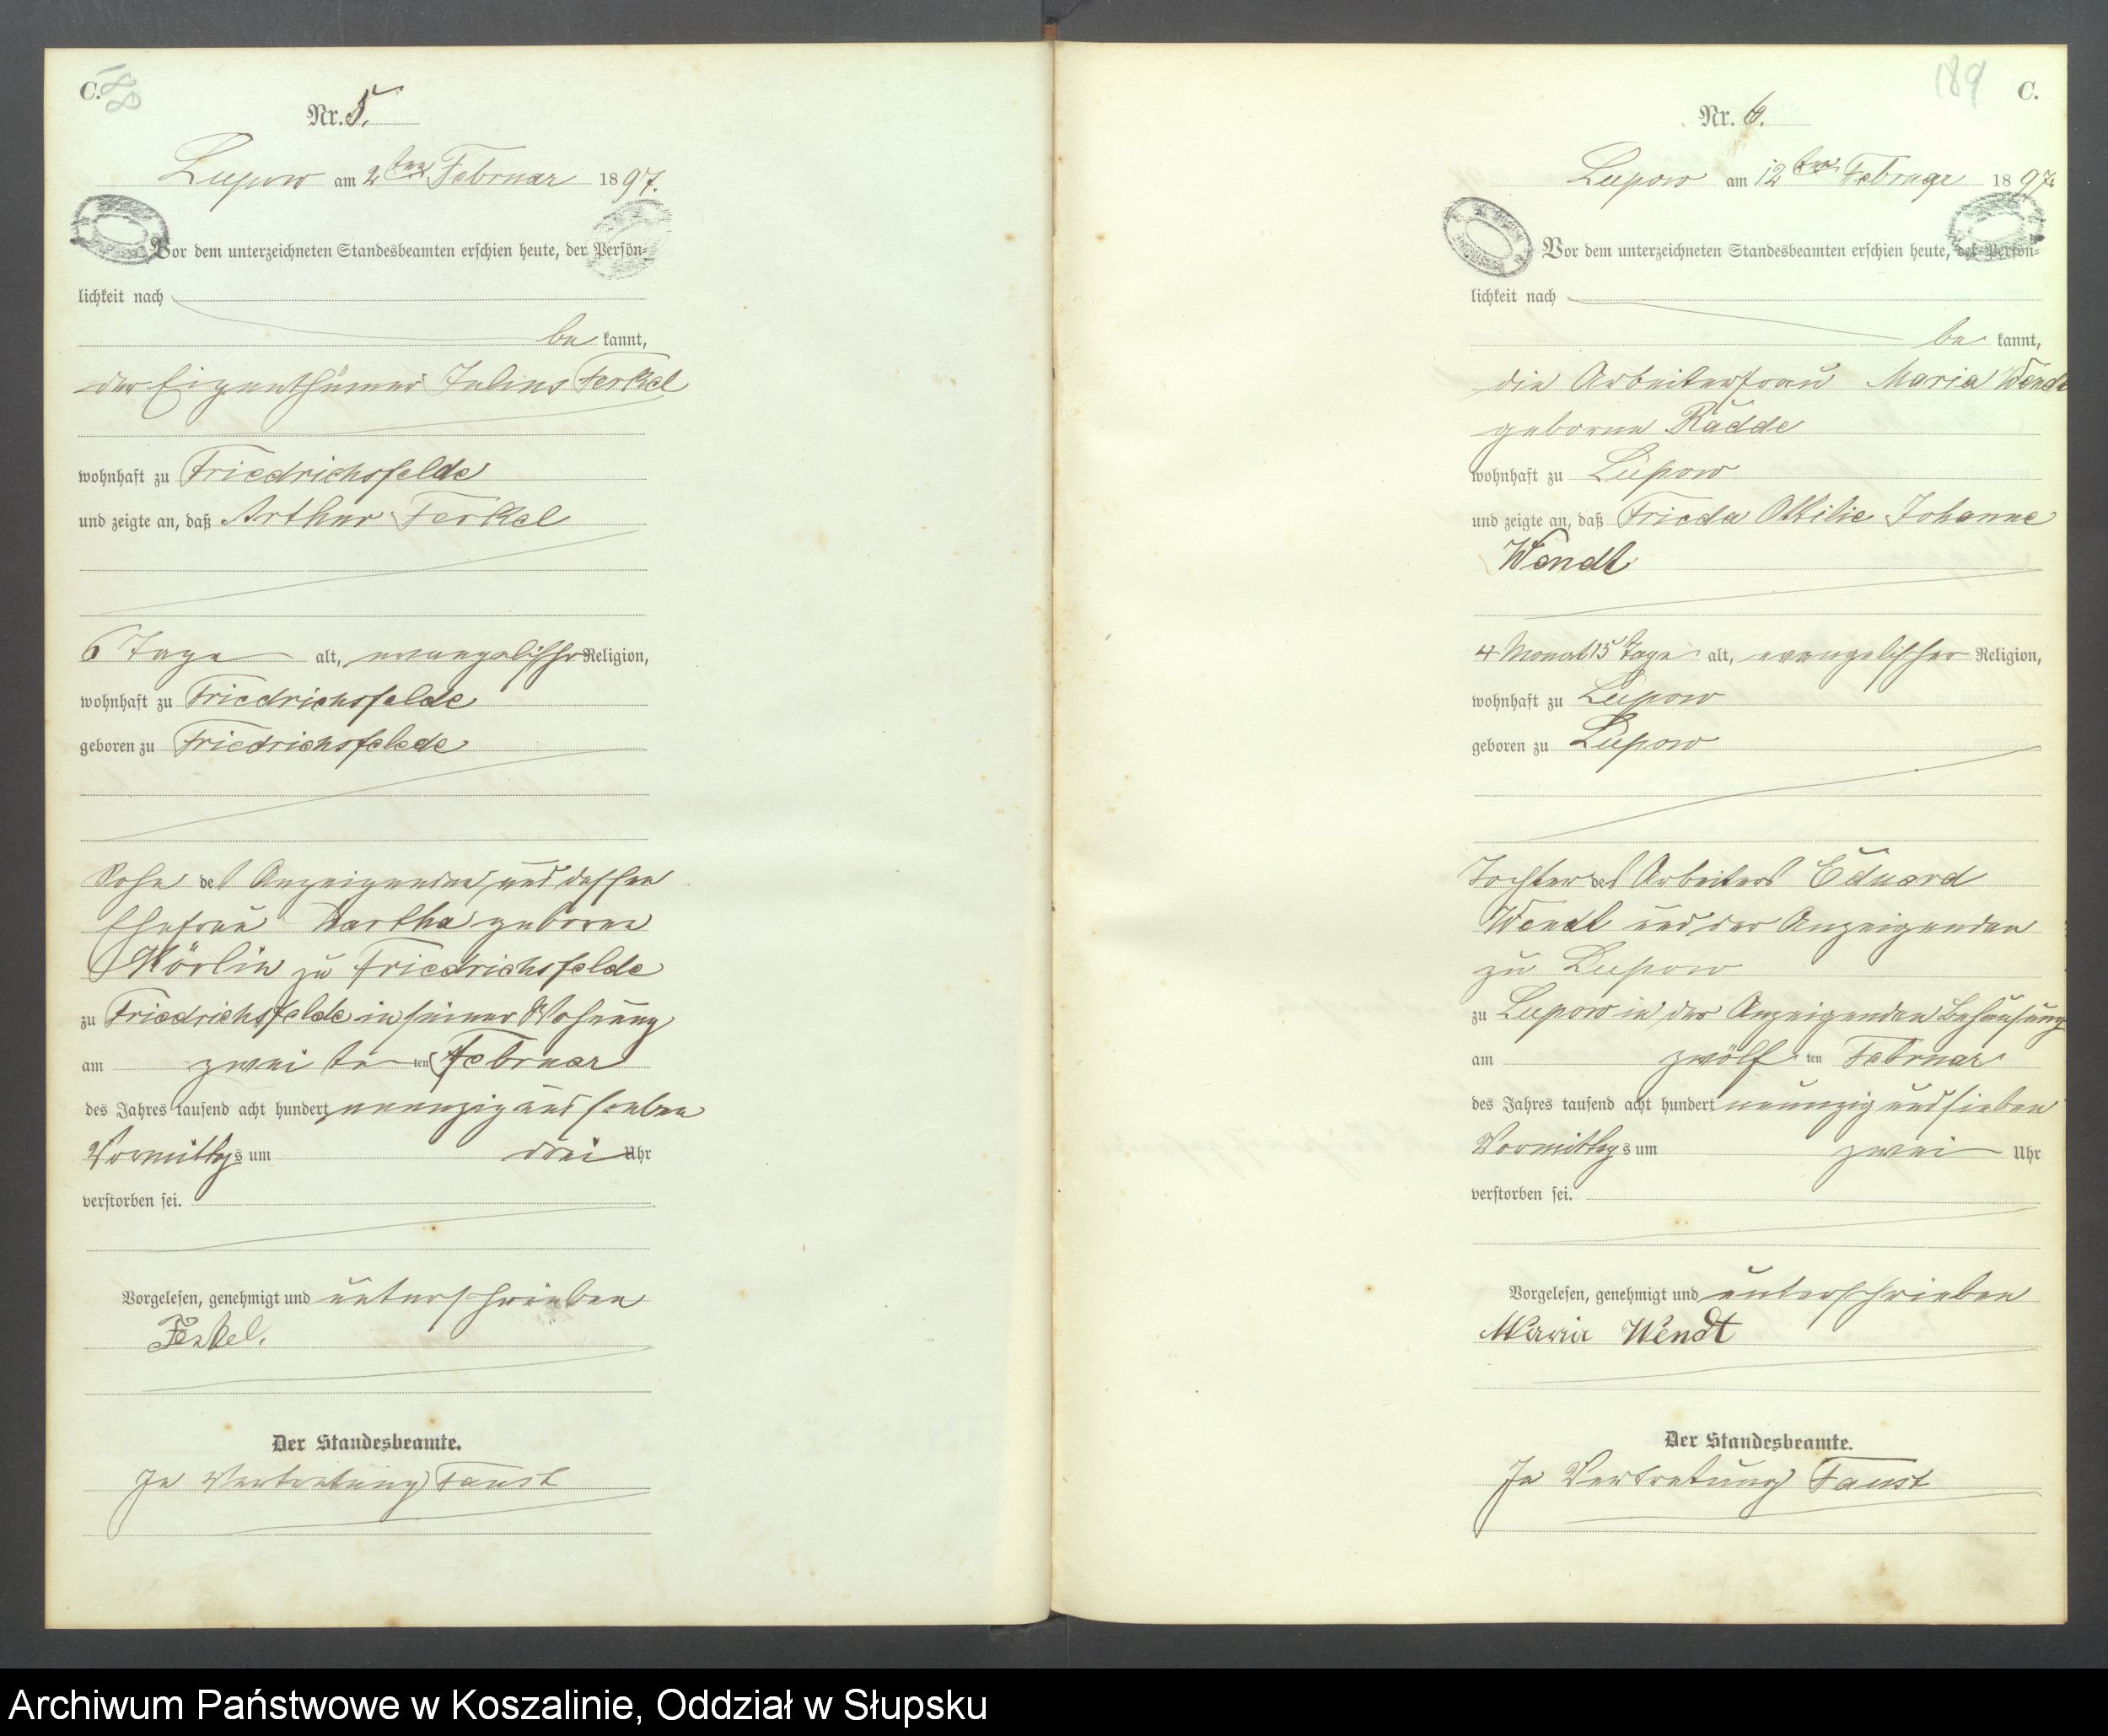 C.
188
Nr. 5.
Lupow am 2ten Februar 1897.
Vor dem unterzeichneten Standesbeamten erschien heute, der Persön-
lichkeit nach
be kannt,
der Eigenthümer Julius Ferkel
wohnhaft zu Friedrichsfelde
und zeigte an, daß Arthur Ferkel
6 Tage alt, evangelischer Religion,
wohnhaft zu Friedrichsfelde
geboren zu Friedrichsfelde
Sohn des Anzeigenden und dessen
Ehefrau Martha geborne
zu Friedrichsfelde
zu Friedrichsfelde in seiner Wohnung
am zwei te ten Februar
des Jahres tausend acht hundert neunzig und sieben
Vormittags um drei Uhr
verstorben sei.
Vorgelesen, genehmigt und unterschrieben
Ferkel.
Der Standesbeamte.
In Vertretung Faust
189
C.
Nr. 6.
Lupow am 12ten Februar 1897.
Vor dem unterzeichneten Standesbeamten erschien heute, der Persön-
lichkeit nach
be kannt,
die Arbeiterfrau Maria Wendt
geborne Radde
wohnhaft zu Lupow
und zeigte an, daß Frieda Ottilie Johanne
Wendt
4 Monat 15 Tage alt, evangelischer Religion,
wohnhaft zu Lupow
geboren zu Lupow
Tochter des Arbeiters Eduard
Wendt und der Anzeigenden
zu Lupow
zu Lupow in der Anzeigenden Behausung
am zwölf ten Februar
des Jahres tausend acht hundert neunzig und sieben
Vormittags um zwei Uhr
verstorben sei.
Vorgelesen, genehmigt und unterschrieben
Maria Wendt
Der Standesbeamte.
In Vertretung Faust
Archiwum Państwowe w Koszalinie, Oddział w Słupsku